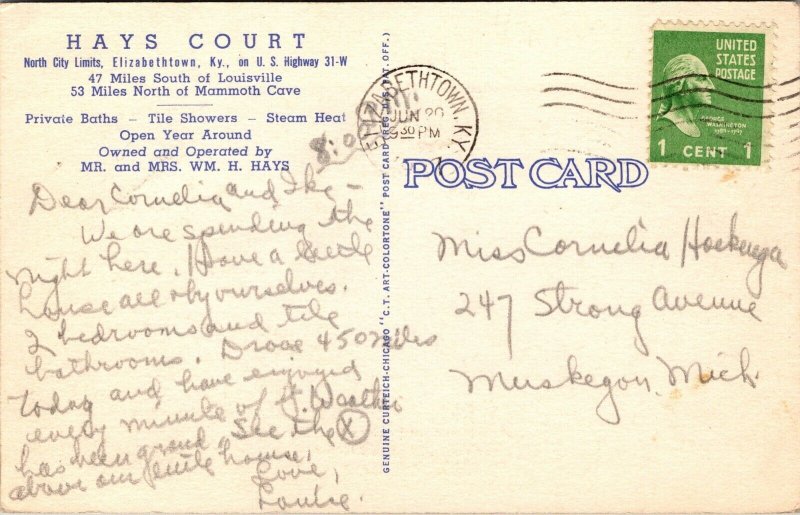 HAYS COURT
North City Limits, Elizabethtown, Ky., on U. S. Highway 31-W
47 Miles South of Louisville
53 Miles North of Mammoth Cave
Private Baths – Tile Showers – Steam Heat
Open Year Around
Owned and Operated by
MR. and MRS. WM. H. HAYS
8:0
Dear Cornelia and Ike –
We are spending the
night here. Have a little
house all by ourselves.
2 bedrooms and tile
bathrooms. Drove 450 miles
today and have enjoyed
every minute of it. Weather
has been grand. See the X
above our little house.
Love,
Louise.
GENUINE CURTEICH-CHICAGO "C. T. ART-COLORTONE" POST CARD (REG. U. S. PAT. OFF.)
ELIZABETHTOWN, KY.
JUN 20
5 30 PM
UNITED
STATES
POSTAGE
GEORGE
WASHINGTON
1789-1797
1 CENT 1
POST CARD
Miss Cornelia Hoekenga
247 Strong Avenue
Muskegon, Mich.